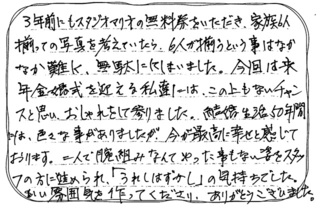 3年前にもスタジオマリオの無料券をいただき、家族6人
揃っての写真を考えていたら、6人が揃うという事はなか
なか難しく、無駄にしてしまいました。今回は来
年金婚式を迎える私達には、この上もないチャン
スと思い、おしゃれをして参りました。結婚生活50年間
には、色々な事がありましたが今が最高に幸せと感じて
おります。二人で腕組みなんてやった事もない姿をスタッフ
の方に進められ、「うれしはずかし」の気持ちでした。
よい雰囲気を作ってくださり、ありがとうございました。